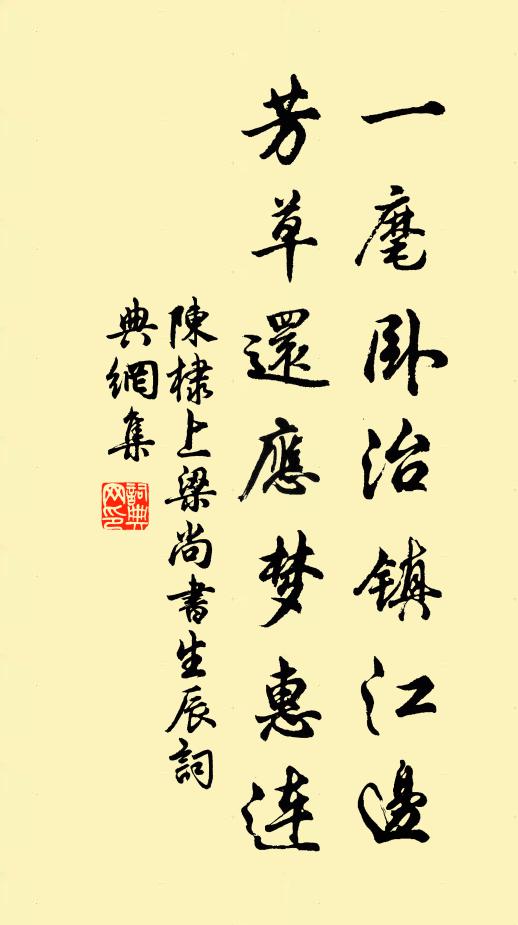 一麾卧治镇江邊
芳草還應梦惠連
陳棣上梁尚書生辰詞
典網集
詞典網印